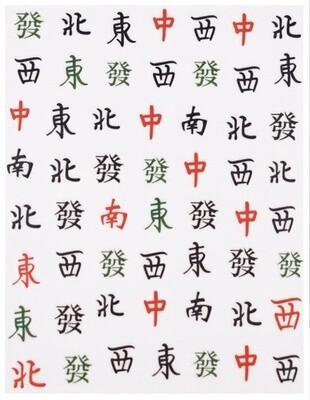 發北東中西中北
西東發西發西東
中東北中南北發
南北發發中西北
北發南東發中西
東西發西東發發
東發北中南中西
北發西東發中西